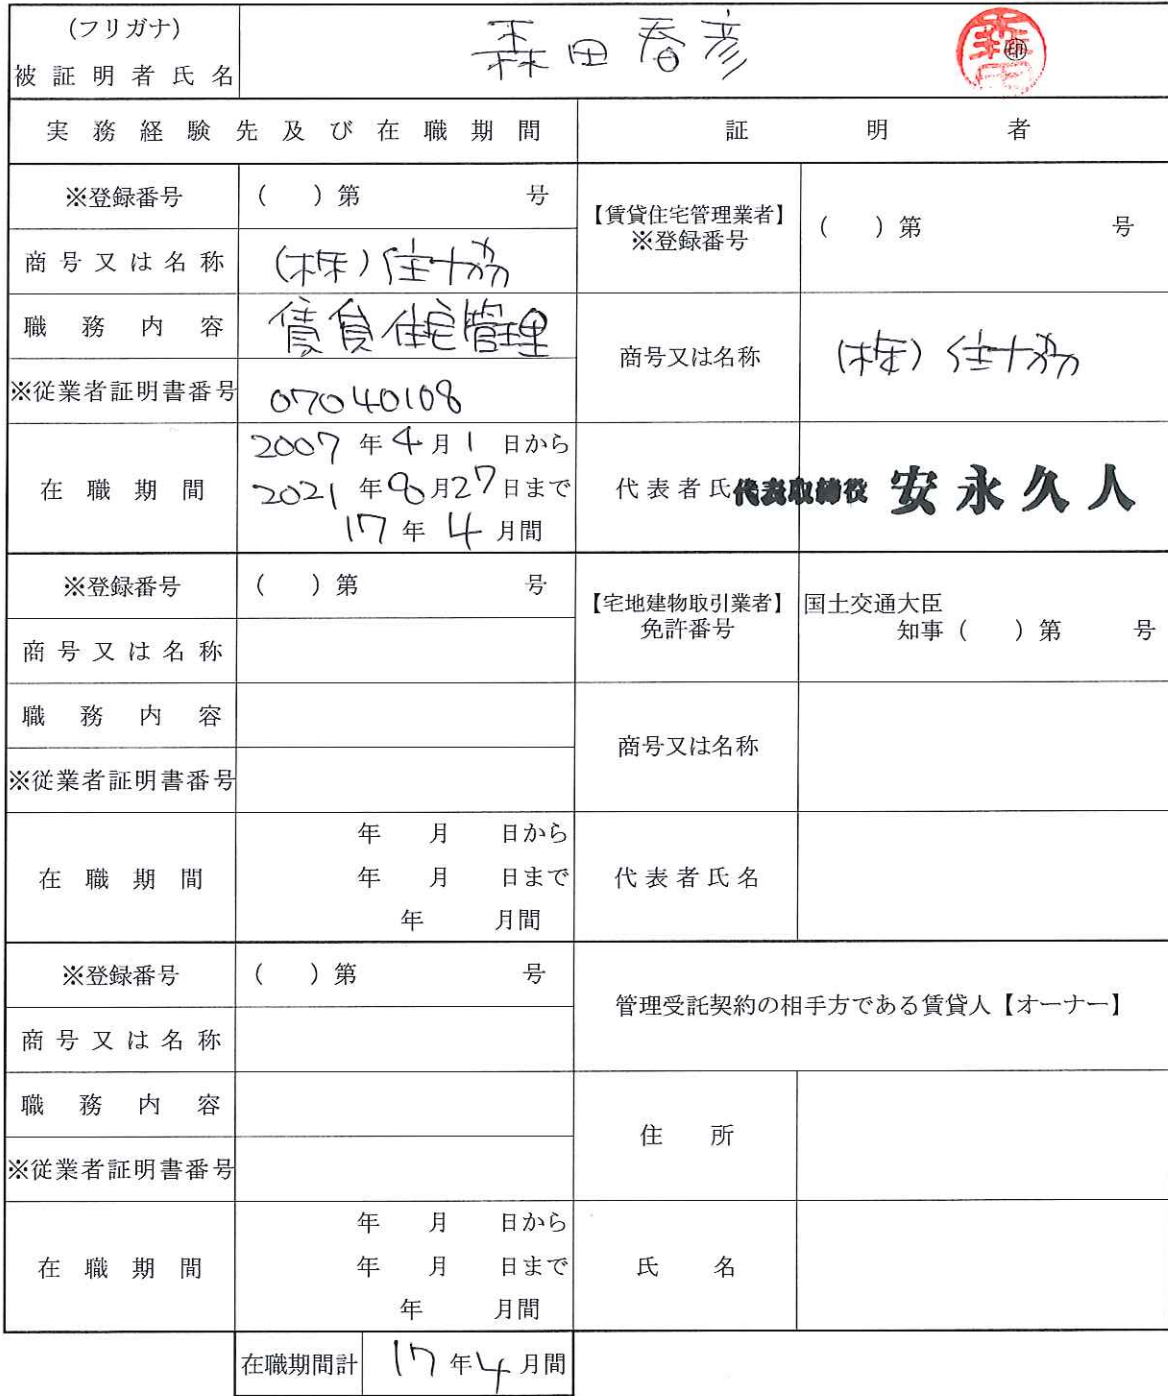 (フリガナ)
被証明者氏名 森田春彦 印
実務経験先及び在職期間 証明者
※登録番号 ( )第 号
商号又は名称 (株)住十
職務内容 賃貸住宅管理
※従業者証明書番号 07040108
在職期間 2007年4月1日から
2021年8月27日まで
17年4月間
【賃貸住宅管理業者】
※登録番号 ( )第 号
商号又は名称 (株)住十
代表者氏 代表取締役 安永久人
※登録番号 ( )第 号
商号又は名称
職務内容
※従業者証明書番号
在職期間 年 月 日から
年 月 日まで
年 月間
【宅地建物取引業者】
免許番号
国土交通大臣
知事( )第 号
商号又は名称
代表者氏名
※登録番号 ( )第 号
商号又は名称
職務内容
※従業者証明書番号
在職期間 年 月 日から
年 月 日まで
年 月間
管理受託契約の相手方である賃貸人【オーナー】
住所
氏名
在職期間計 17年4月間